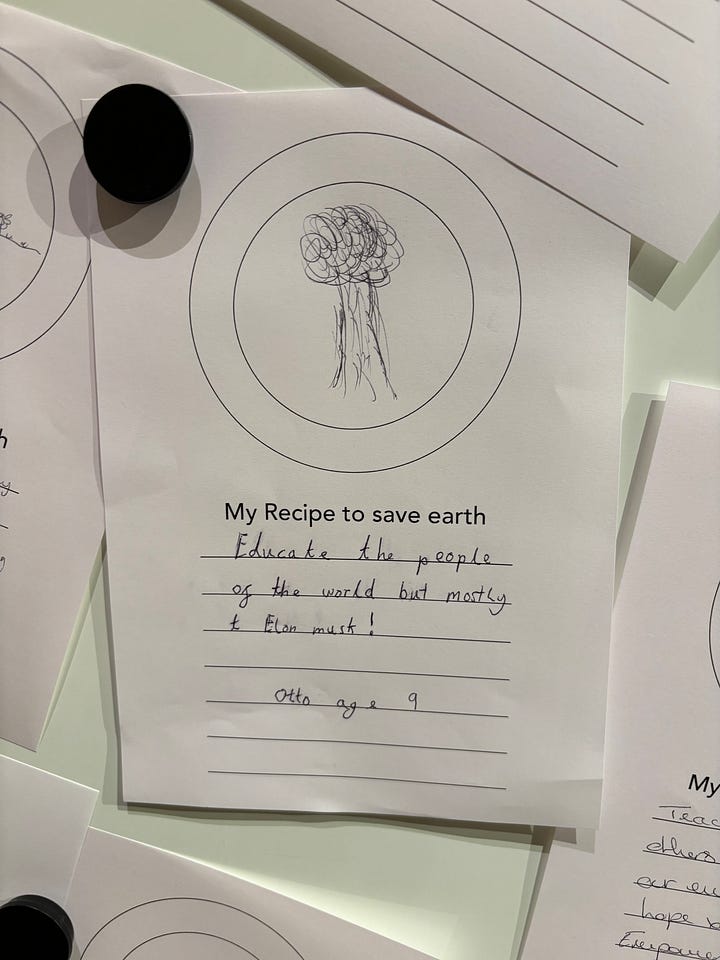 My Recipe to save earth
Educate the people
of the world but mostly
t Elon musk!
Otto age 9
My
Teac
others
our en
hope
Empowe
h
y